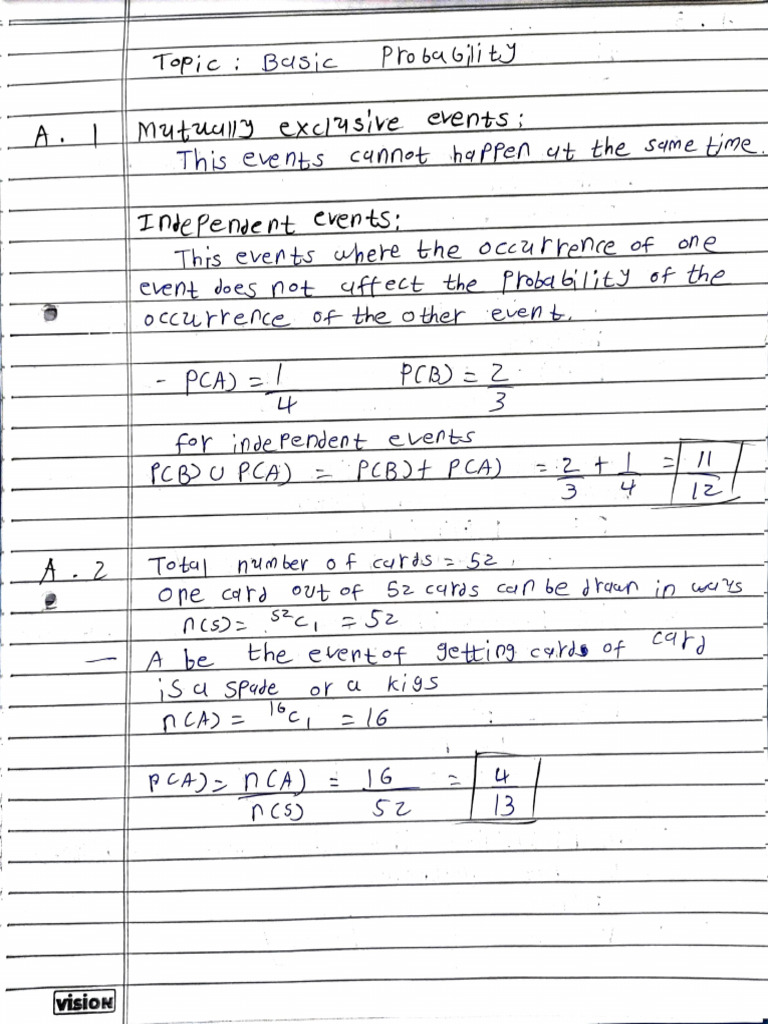 Topic : Basic Probability
A. 1 Mutually exclusive events :
This events cannot happen at the same time.
Independent events :
This events where the occurrence of one
event does not affect the probability of the
occurrence of the other event.
- P(A) = 1/4 P(B) = 2/3
for independent events
P(B) ∪ P(A) = P(B) + P(A) = 2/3 + 1/4 = 11/12
A. 2 Total number of cards = 52,
one card out of 52 cards can be drawn in ways
n(S) = ⁵²C₁ = 52
— A be the event of getting cards of card
is a spade or a kigs
n(A) = ¹⁶C₁ = 16
P(A) = n(A)/n(S) = 16/52 = 4/13
vision